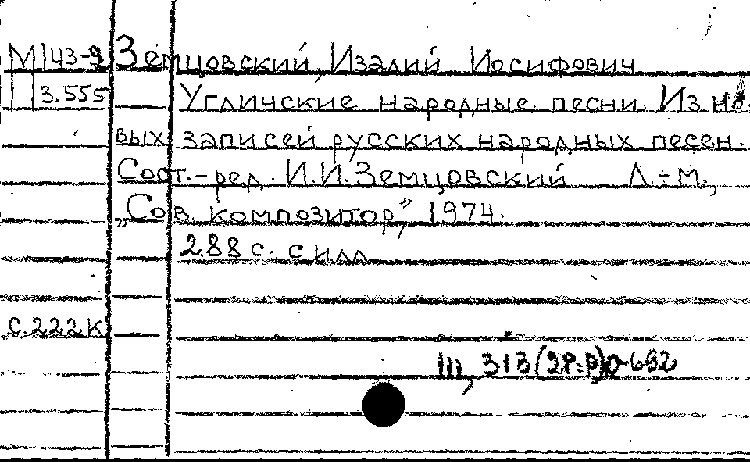 М 43-9 Земцовский, Изалий Иосифович
3.555 Угличские народные песни. Из но-
вых записей русских народных песен.
Сост.-ред. И.И.Земцовский Л.-М.,
„Сов. композитор", 1974.
288 с. с илл
с.222к
III, 313(2Р-Р)